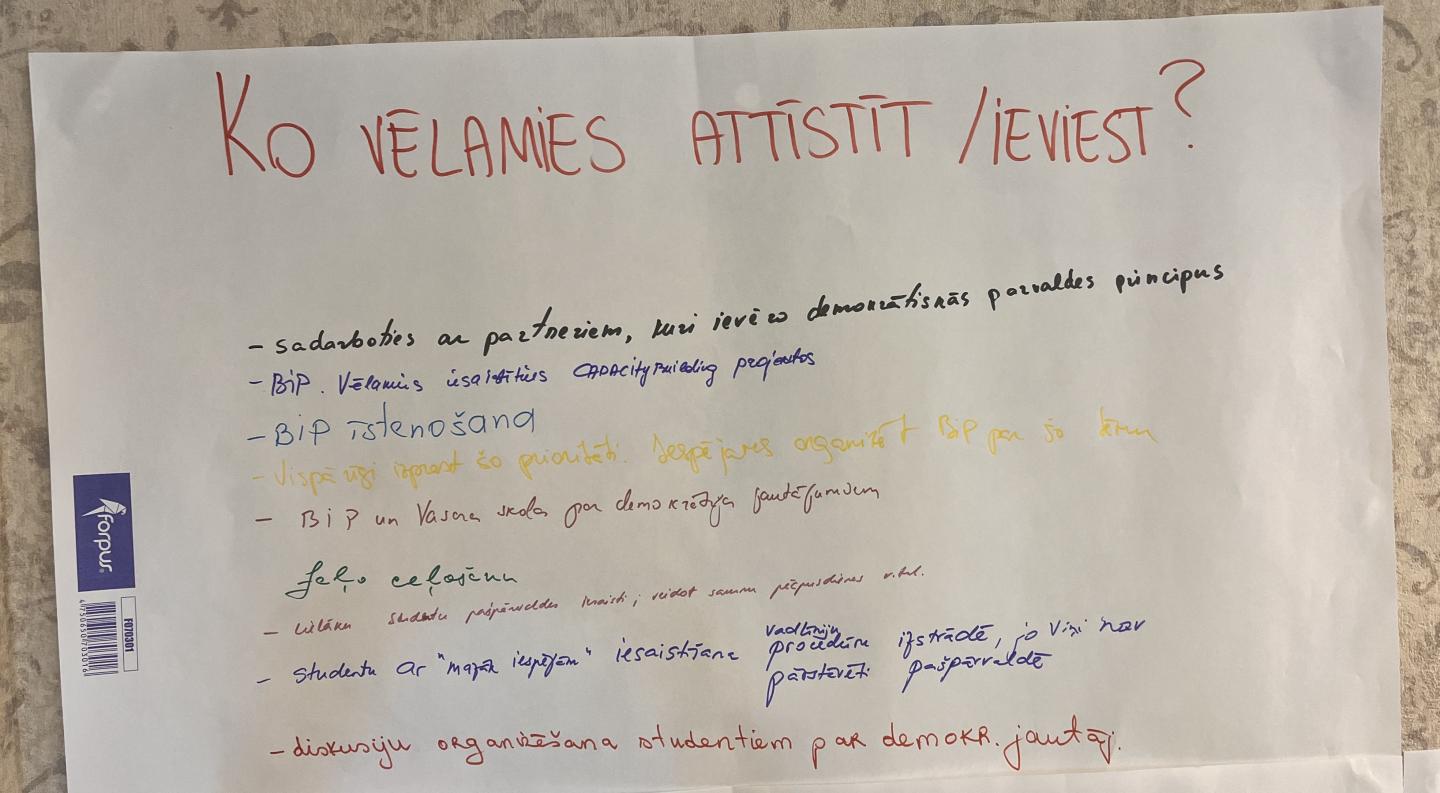 KO VĒLAMIES ATTĪSTĪT /IEVIEST?
- sadarboties ar partneriem, kuri ievēro demokrātiskās pārvaldes principus
- BiP. Vēlamies iesaistīties CAPACity Building projektos
- BiP īstenošana
- Vispārīgi izprast šo prioritāti. Iespējams organizēt BiP par šo tēmu
- BiP un Vasaras skola par demokrātija jautājumiem
Zaļo ceļošanu
- Lielāku studentu pašpārvaldes iesaisti, veidot pēcpusdienas u.tml.
- studentu ar "mazāk iespējām" iesaistīšana vadlīniju
procedūru izstrādē, jo viņi nav
pārstāvēti pašpārvaldē
- diskusiju organizēšana studentiem par demokr. jautāj.
forpus
FO70301